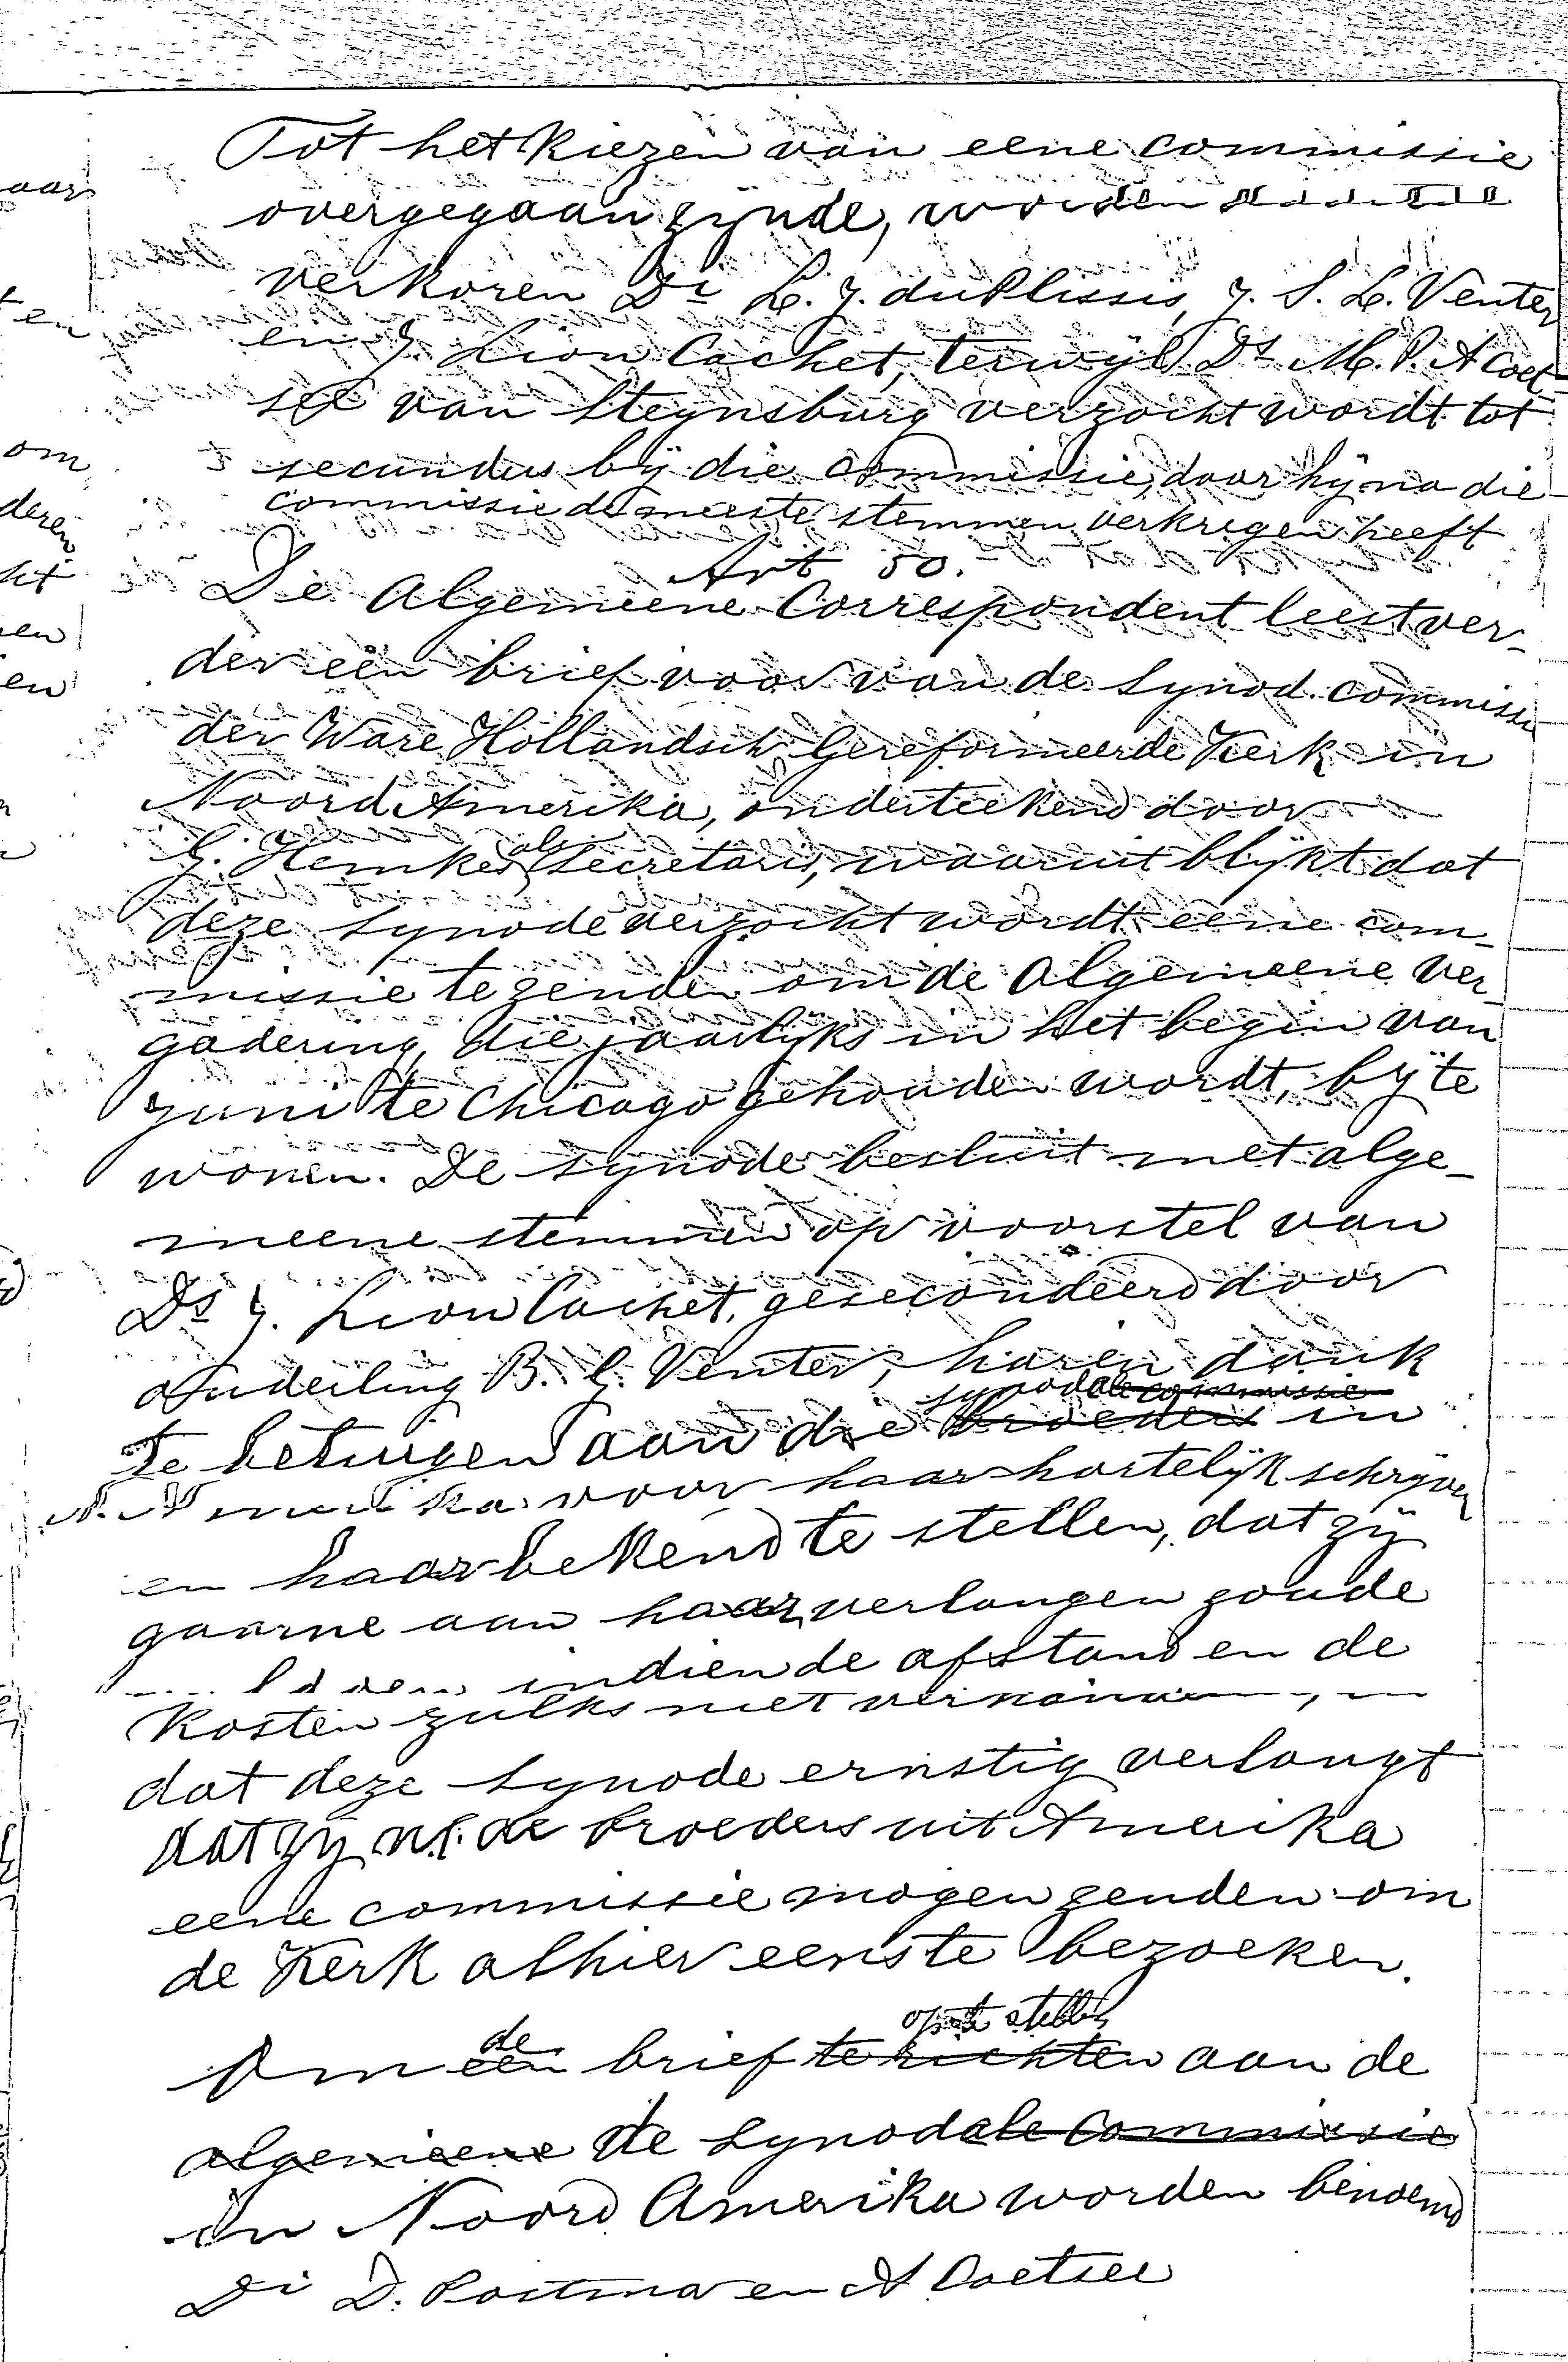 Tot het kiezen van eene commissie
overgegaan zynde, worden
verkoren Di L. J. du Plessis, J. S. L. Venter
en J. Lion Cachet, terwyl Ds M. P. A Coet-
see van Steynsburg verzocht wordt tot
secundus bÿ die commissie, daar hÿ na die
commissie de meeste stemmen verkregen heeft
Art 50.
De Algemeene Correspondent leest ver-
der een brief voor van de Synod. commissie
der Ware Hollandsch Gereformeerde Kerk in
Noord Amerika, onderteekend door
G. Hemkes als Secretaris, waaruit blÿkt dat
deze Synode verzocht wordt eene com-
missie te zenden om de Algemeene Ver-
gadering, die jaarlÿks in het begin van
Juni te Chicago gehouden wordt, bÿ te
wonen. De Synode besluit met alge-
meene stemmen op voorstel van
Ds J. Lion Cachet, gesecondeerd door
Ouderling B. G. Venter, haren dank
synodale commissie
te betuigen aan die broeders in
N. Amerika voor haar hartelÿk schrÿven
en haar bekend te stellen, dat zÿ
gaarne aan haar verlangen zoude
indien de afstand en de
kosten zulks niet
dat deze Synode ernstig verlangt
dat zÿ n.l. de broeders uit Amerika
eene commissie mogen zenden om
de Kerk alhier eens te bezoeken.
de op te stellen
Om een brief te richten aan de
algemeene de Synodale Commissie
in Noord Amerika worden benoemd
Di D. Postma en A Coetsee